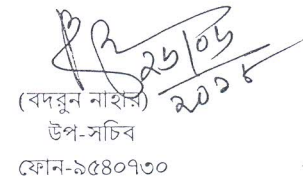 ২৬/০৬
২০১৮
(বদরুন নাহার)
উপ-সচিব
ফোন-৯৫৪০৭৩০